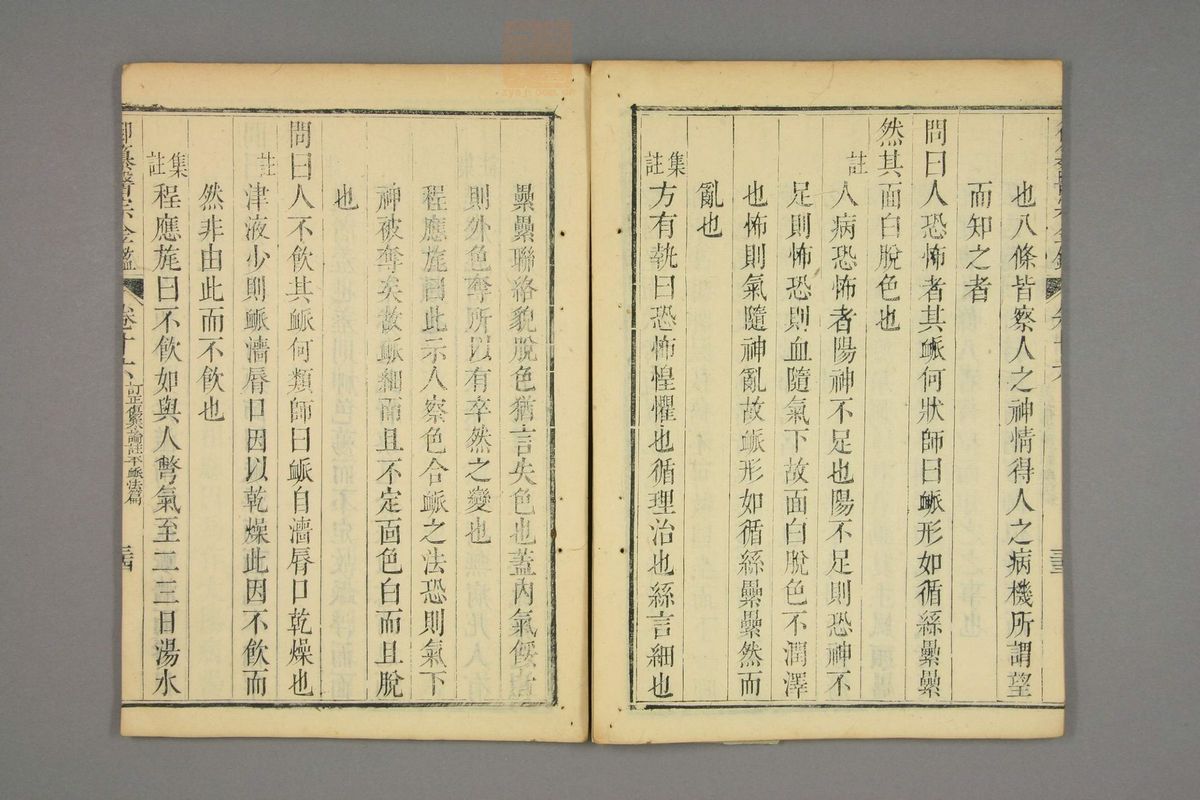 也八條皆察人之神情得人之病機所謂望
而知之者
問曰人恐怖者其䘑何狀師曰䘑形如循絲纍纍
然其面白脫色也
註
人病恐怖者陽神不足也陽不足則恐神不
足則怖恐則血隨氣下故面白脫色不潤澤
也怖則氣隨神亂故䘑形如循絲纍纍然而
亂也
集註
方有執曰恐怖惶懼也循理治也絲言細也
三十三
纍纍聯絡貌脫色猶言失色也蓋內氣餒
則外色奪所以有卒然之變也
程應旄曰此示人察色合䘑之法恐則氣下
神被奪矣故䘑細而且不定面色白而且脫
也
問曰人不飲其䘑何類師曰䘑自濇脣口乾燥也
註
津液少則䘑濇脣口因以乾燥此因不飲而
然非由此而不飲也
集註
程應旄曰不飲如與人彆氣至二三日湯水
御纂醫宗金鑑
卷十六
訂正傷寒論註平䘑法篇
三十四